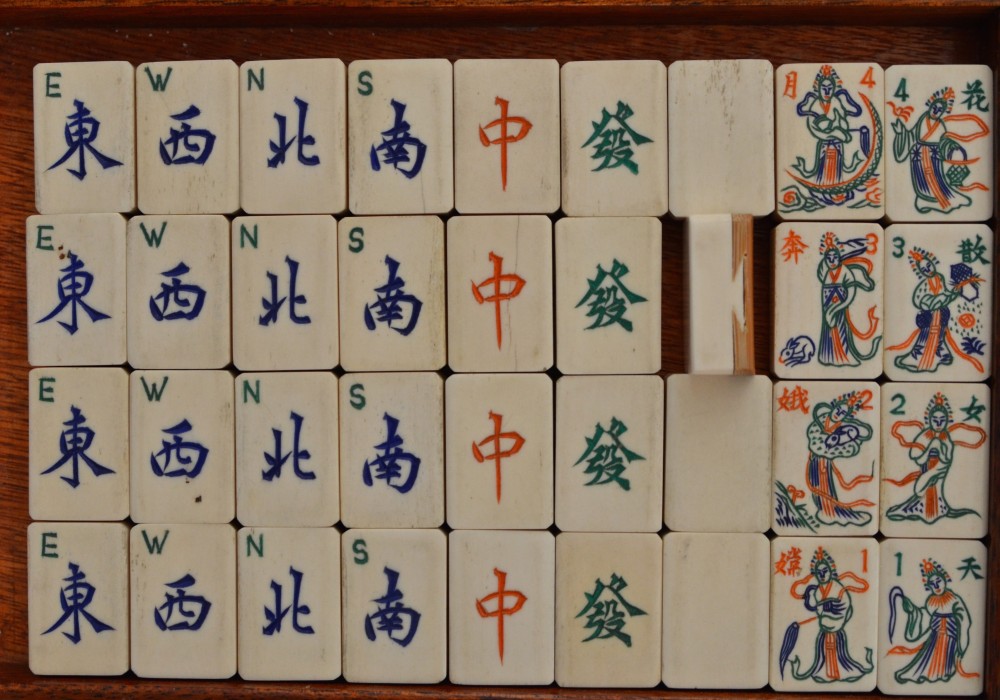 E W N S 月 4 4 花
東 西 北 南 中 發
E W N S 奔 3 3 散
東 西 北 南 中 發
E W N S 娥 2 2 女
東 西 北 南 中 發
E W N S 嫦 1 1 天
東 西 北 南 中 發